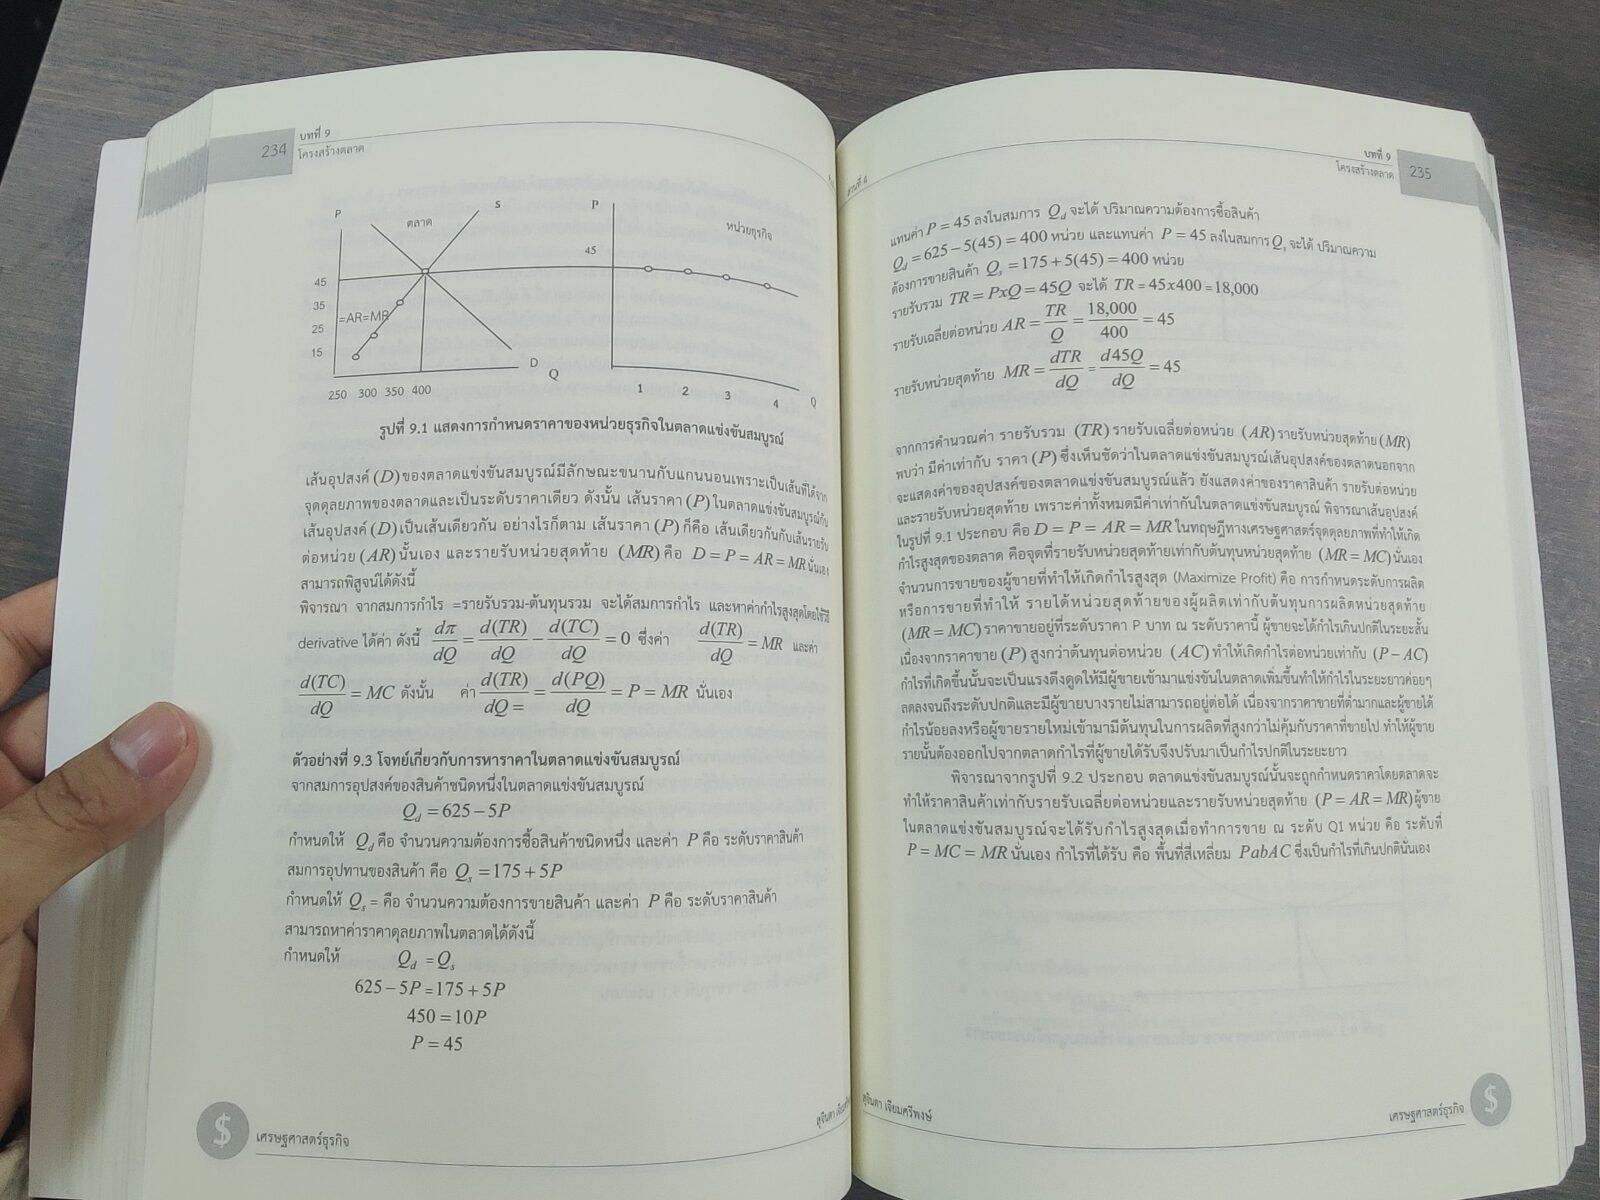 234
บทที่ 9
โครงสร้างตลาด
P
ตลาด
S
45
35
25
15
=AR=MR
D
Q
250 300 350 400
P
หน่วยธุรกิจ
45
1 2 3 4 Q
รูปที่ 9.1 แสดงการกำหนดราคาของหน่วยธุรกิจในตลาดแข่งขันสมบูรณ์
เส้นอุปสงค์ (D) ของตลาดแข่งขันสมบูรณ์มีลักษณะขนานกับแกนนอนเพราะเป็นเส้นที่ได้จาก
จุดดุลยภาพของตลาดและเป็นระดับราคาเดียว ดังนั้น เส้นราคา (P) ในตลาดแข่งขันสมบูรณ์กับ
เส้นอุปสงค์ (D) เป็นเส้นเดียวกัน อย่างไรก็ตาม เส้นราคา (P) ก็คือ เส้นเดียวกันกับเส้นรายรับ
ต่อหน่วย (AR) นั้นเอง และรายรับหน่วยสุดท้าย (MR) คือ D = P = AR = MR นั่นเอง
สามารถพิสูจน์ได้ดังนี้
พิจารณา จากสมการกำไร =รายรับรวม-ต้นทุนรวม จะได้สมการกำไร และหาค่ากำไรสูงสุดโดยใช้วิธี
derivative ได้ค่า ดังนี้ dπ/dQ = d(TR)/dQ − d(TC)/dQ = 0 ซึ่งค่า d(TR)/dQ = MR และค่า
d(TC)/dQ = MC ดังนั้น ค่า d(TR)/dQ = = d(PQ)/dQ = P = MR นั่นเอง
ตัวอย่างที่ 9.3 โจทย์เกี่ยวกับการหาราคาในตลาดแข่งขันสมบูรณ์
จากสมการอุปสงค์ของสินค้าชนิดหนึ่งในตลาดแข่งขันสมบูรณ์
Qd = 625 − 5P
กำหนดให้ Qd คือ จำนวนความต้องการซื้อสินค้าชนิดหนึ่ง และค่า P คือ ระดับราคาสินค้า
สมการอุปทานของสินค้า คือ Qs = 175 + 5P
กำหนดให้ Qs = คือ จำนวนความต้องการขายสินค้า และค่า P คือ ระดับราคาสินค้า
สามารถหาค่าราคาดุลยภาพในตลาดได้ดังนี้
กำหนดให้ Qd = Qs
625 − 5P = 175 + 5P
450 = 10P
P = 45
$ เศรษฐศาสตร์ธุรกิจ
สุจินดา เจียมศรีพงษ์
บทที่ 9
โครงสร้างตลาด
235
แทนค่า P = 45 ลงในสมการ Qd จะได้ ปริมาณความต้องการซื้อสินค้า
Qd = 625 − 5(45) = 400 หน่วย และแทนค่า P = 45 ลงในสมการ Qs จะได้ ปริมาณความ
ต้องการขายสินค้า Qs = 175 + 5(45) = 400 หน่วย
รายรับรวม TR = PxQ = 45Q จะได้ TR = 45x400 = 18,000
รายรับเฉลี่ยต่อหน่วย AR = TR/Q = 18,000/400 = 45
รายรับหน่วยสุดท้าย MR = dTR/dQ = d45Q/dQ = 45
จากการคำนวณค่า รายรับรวม (TR) รายรับเฉลี่ยต่อหน่วย (AR) รายรับหน่วยสุดท้าย (MR)
พบว่า มีค่าเท่ากับ ราคา (P) ซึ่งเห็นชัดว่าในตลาดแข่งขันสมบูรณ์เส้นอุปสงค์ของตลาดนอกจาก
จะแสดงค่าของอุปสงค์ของตลาดแข่งขันสมบูรณ์แล้ว ยังแสดงค่าของราคาสินค้า รายรับต่อหน่วย
และรายรับหน่วยสุดท้าย เพราะค่าทั้งหมดมีค่าเท่ากันในตลาดแข่งขันสมบูรณ์ พิจารณาเส้นอุปสงค์
ในรูปที่ 9.1 ประกอบ คือ D = P = AR = MR ในทฤษฎีทางเศรษฐศาสตร์จุดดุลยภาพที่ทำให้เกิด
กำไรสูงสุดของตลาด คือจุดที่รายรับหน่วยสุดท้ายเท่ากับต้นทุนหน่วยสุดท้าย (MR = MC) นั่นเอง
จำนวนการขายของผู้ขายที่ทำให้เกิดกำไรสูงสุด (Maximize Profit) คือ การกำหนดระดับการผลิต
หรือการขายที่ทำให้ รายได้หน่วยสุดท้ายของผู้ผลิตเท่ากับต้นทุนการผลิตหน่วยสุดท้าย
(MR = MC) ราคาขายอยู่ที่ระดับราคา P บาท ณ ระดับราคานี้ ผู้ขายจะได้กำไรเกินปกติในระยะสั้น
เนื่องจากราคาขาย (P) สูงกว่าต้นทุนต่อหน่วย (AC) ทำให้เกิดกำไรต่อหน่วยเท่ากับ (P − AC)
กำไรที่เกิดขึ้นนั้นจะเป็นแรงดึงดูดให้มีผู้ขายเข้ามาแข่งขันในตลาดเพิ่มขึ้นทำให้กำไรในระยะยาวค่อยๆ
ลดลงจนถึงระดับปกติและมีผู้ขายบางรายไม่สามารถอยู่ต่อได้ เนื่องจากราคาขายที่ต่ำมากและผู้ขายได้
กำไรน้อยลงหรือผู้ขายรายใหม่เข้ามามีต้นทุนในการผลิตที่สูงกว่าไม่คุ้มกับราคาที่ขายไป ทำให้ผู้ขาย
รายนั้นต้องออกไปจากตลาดกำไรที่ผู้ขายได้รับจึงปรับมาเป็นกำไรปกติในระยะยาว
พิจารณาจากรูปที่ 9.2 ประกอบ ตลาดแข่งขันสมบูรณ์นั้นจะถูกกำหนดราคาโดยตลาดจะ
ทำให้ราคาสินค้าเท่ากับรายรับเฉลี่ยต่อหน่วยและรายรับหน่วยสุดท้าย (P = AR = MR) ผู้ขาย
ในตลาดแข่งขันสมบูรณ์จะได้รับกำไรสูงสุดเมื่อทำการขาย ณ ระดับ Q1 หน่วย คือ ระดับที่
P = MC = MR นั่นเอง กำไรที่ได้รับ คือ พื้นที่สี่เหลี่ยม PabAC ซึ่งเป็นกำไรที่เกินปกตินั่นเอง
สุจินดา เจียมศรีพงษ์
เศรษฐศาสตร์ธุรกิจ $